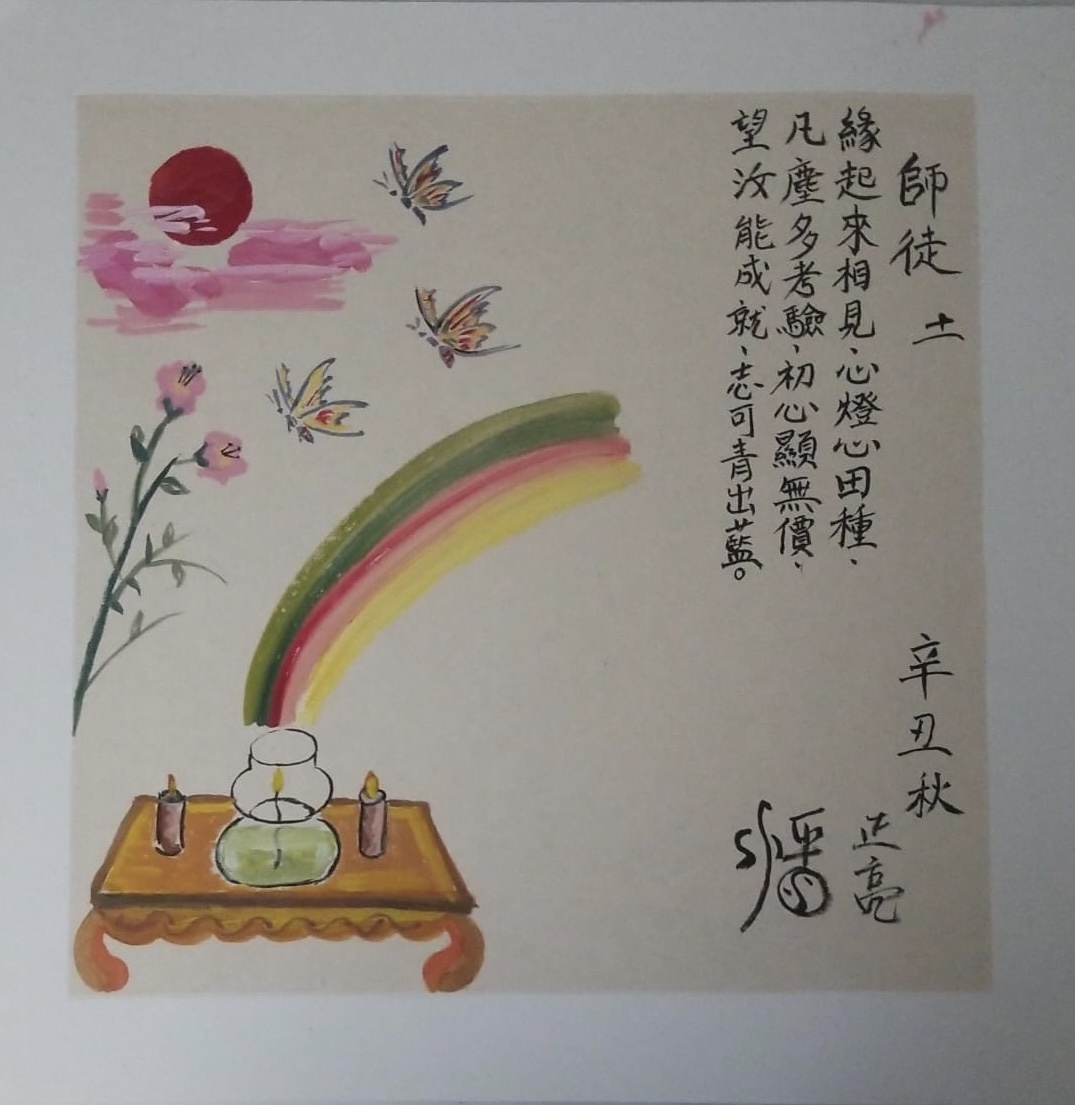 師徒
緣起來相見、心燈心田種、
凡塵多考驗、初心顯無價、
望汝能成就、志可青出藍。
辛丑秋
正亮